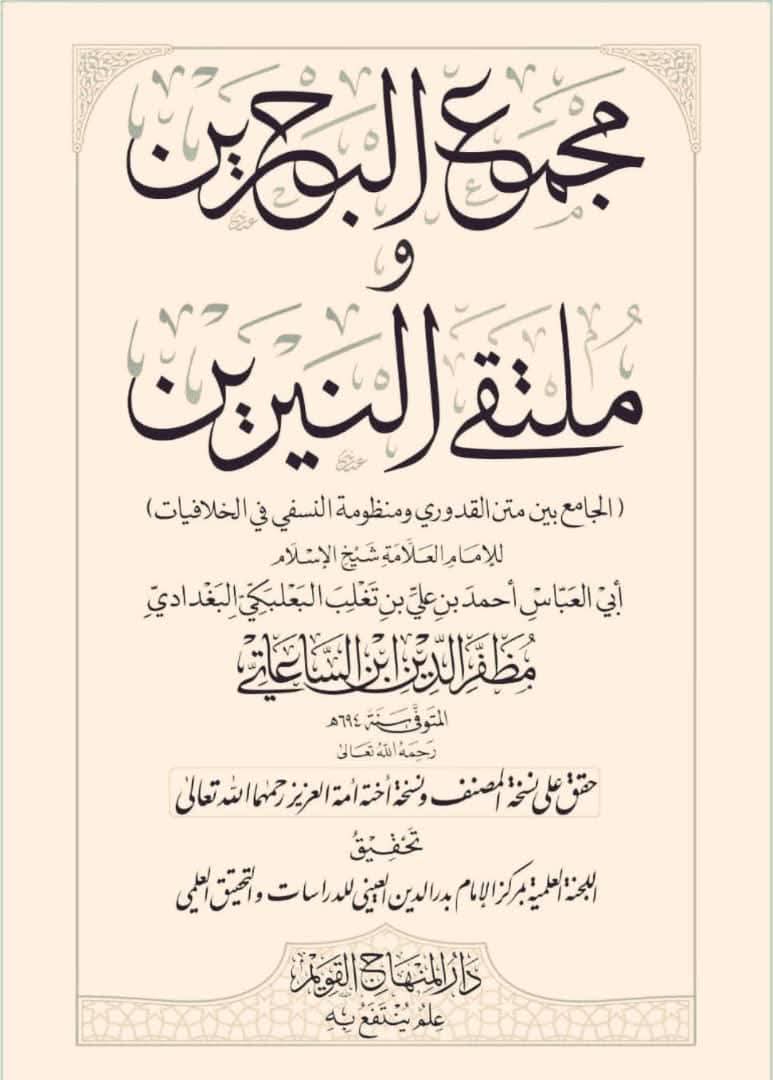 مجمع البحرين
و
ملتقى النيرين
(الجامع بين متن القدوري ومنظومة النسفي في الخلافيات)
للإمَامِ العَلَّامَةِ شَيْخِ الإِسْلَام
أبي العَبّاسِ أحمدَ بنِ عليِّ بنِ تَغْلِبَ البَعْلَبَكِّيِّ البَغْداديِّ
مُظَفَّرِ الدِّيْنِ ابْنِ السَّاعَاتِيّ
المتَوفَّى سَنَة ٦٩٤هـ
رَحِمَهُ اللهُ تَعَالَىٰ
حقق على نسخة المصنف ونسخة أخته أمة العزيز رحمهما الله تعالىٰ
تَحْقِيْقُ
اللجنة العلمية بمركز الإمام بدر الدين العيني للدراسات والتحقيق العلمي
دَارُ المِنْهَاجِ القَوِيْمِ
عِلمٌ يُنْتَفَعُ بِهِ